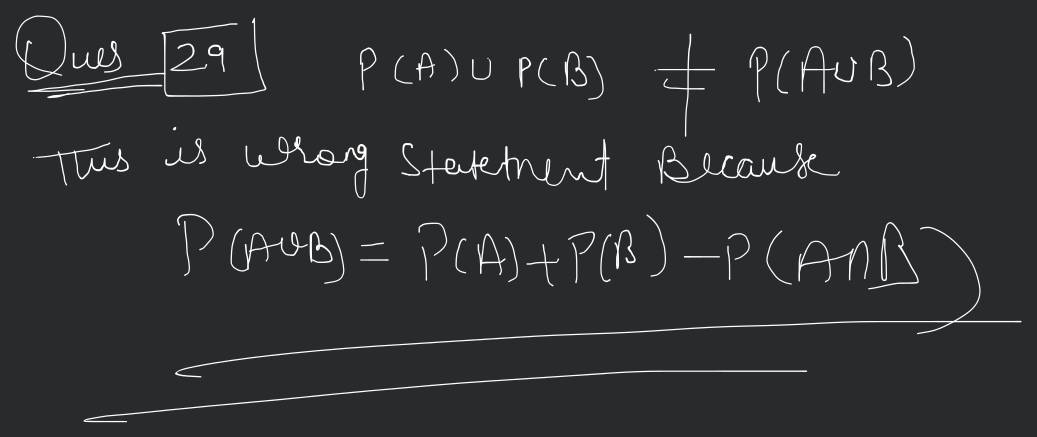 Ques 29 P(A) ∪ P(B) ≠ P(A∪B)
This is wrong Statetment Because
P(A∪B) = P(A) + P(B) - P(A∩B)